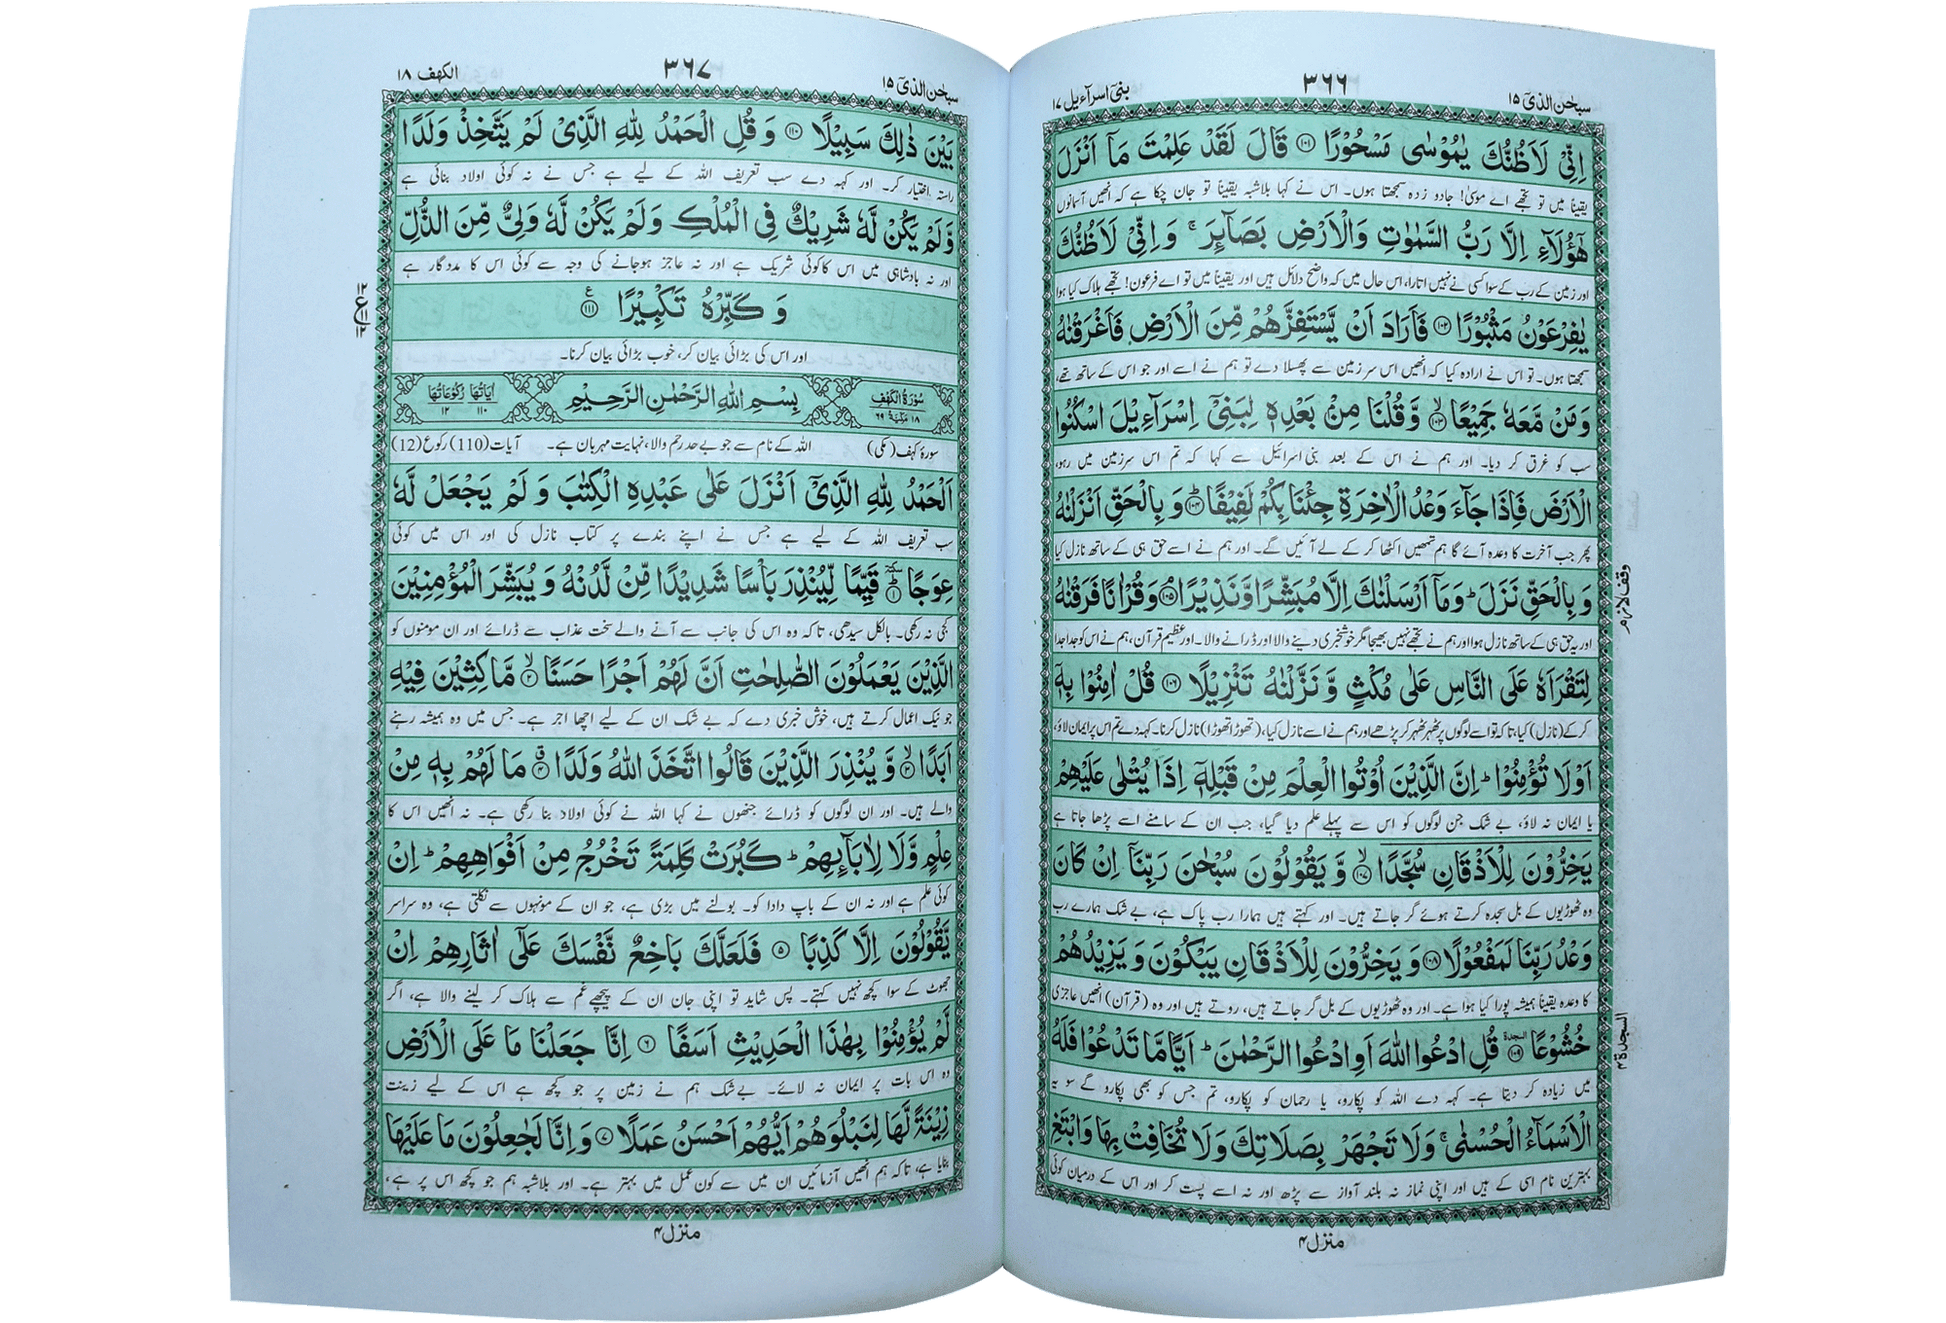 سبحٰن الذیۤ ۱۵
۳۶۶
بنیۤ اسرآءیل ۱۷
اِنِّیْ لَاَظُنُّكَ یٰمُوْسٰی مَسْحُوْرًا ﴿۱۰۱﴾ قَالَ لَقَدْ عَلِمْتَ مَاۤ اَنْزَلَ
یقیناً میں تو تجھے اے موسیٰ! جادو زدہ سمجھتا ہوں۔ اس نے کہا بلاشبہ یقیناً تو جان چکا ہے کہ انھیں آسمانوں
هٰۤؤُلَآءِ اِلَّا رَبُّ السَّمٰوٰتِ وَالْاَرْضِ بَصَآئِرَ ۚ وَ اِنِّیْ لَاَظُنُّكَ
اور زمین کے رب کے سوا کسی نے نہیں اتارا، اس حال میں کہ واضح دلائل ہیں اور یقیناً میں تو اے فرعون! تجھے ہلاک کیا ہوا
یٰفِرْعَوْنُ مَثْبُوْرًا ﴿۱۰۲﴾ فَاَرَادَ اَنْ یَّسْتَفِزَّهُمْ مِّنَ الْاَرْضِ فَاَغْرَقْنٰهُ
سمجھتا ہوں۔ تو اس نے ارادہ کیا کہ انھیں اس سرزمین سے پھسلا دے تو ہم نے اسے اور جو اس کے ساتھ تھے،
وَمَنْ مَّعَهٗ جَمِیْعًا ﴿۱۰۳﴾ۙ وَّ قُلْنَا مِنْۢ بَعْدِهٖ لِبَنِیْۤ اِسْرَآءِیْلَ اسْكُنُوا
سب کو غرق کر دیا۔ اور ہم نے اس کے بعد بنی اسرائیل سے کہا کہ تم اس سرزمین میں رہو،
الْاَرْضَ فَاِذَا جَآءَ وَعْدُ الْاٰخِرَةِ جِئْنَا بِكُمْ لَفِیْفًا ﴿۱۰۴﴾ؕ وَ بِالْحَقِّ اَنْزَلْنٰهُ
پھر جب آخرت کا وعدہ آئے گا ہم تمھیں اکٹھا کر کے لے آئیں گے۔ اور ہم نے اسے حق ہی کے ساتھ نازل کیا
وَ بِالْحَقِّ نَزَلَ ؕ وَمَاۤ اَرْسَلْنٰكَ اِلَّا مُبَشِّرًا وَّنَذِیْرًا ﴿۱۰۵﴾ۘ وَقُرْاٰنًا فَرَقْنٰهُ
وقف لازم
اور یہ حق ہی کے ساتھ نازل ہوا اور ہم نے تجھے نہیں بھیجا مگر خوشخبری دینے والا اور ڈرانے والا۔ اور عظیم قرآن، ہم نے اس کو جدا جدا
لِتَقْرَاَهٗ عَلَی النَّاسِ عَلٰی مُكْثٍ وَّ نَزَّلْنٰهُ تَنْزِیْلًا ﴿۱۰۶﴾ قُلْ اٰمِنُوْا بِهٖۤ
کر کے (نازل) کیا، تاکہ تو اسے لوگوں پر ٹھہر ٹھہر کر پڑھے اور ہم نے اسے نازل کیا، (تھوڑا تھوڑا) نازل کرنا۔ کہہ دے تم اس پر ایمان لاؤ،
اَوْلَا تُؤْمِنُوْا ؕ اِنَّ الَّذِیْنَ اُوْتُوا الْعِلْمَ مِنْ قَبْلِهٖۤ اِذَا یُتْلٰی عَلَیْهِمْ
یا ایمان نہ لاؤ، بے شک جن لوگوں کو اس سے پہلے علم دیا گیا، جب ان کے سامنے اسے پڑھا جاتا ہے
یَخِرُّوْنَ لِلْاَذْقَانِ سُجَّدًا ﴿۱۰۷﴾ۙ وَّ یَقُوْلُوْنَ سُبْحٰنَ رَبِّنَاۤ اِنْ كَانَ
وہ ٹھوڑیوں کے بل سجدہ کرتے ہوئے گر جاتے ہیں۔ اور کہتے ہیں ہمارا رب پاک ہے، بے شک ہمارے رب
وَعْدُ رَبِّنَا لَمَفْعُوْلًا ﴿۱۰۸﴾ وَ یَخِرُّوْنَ لِلْاَذْقَانِ یَبْكُوْنَ وَ یَزِیْدُهُمْ
کا وعدہ یقیناً ہمیشہ پورا کیا ہوا ہے۔ اور وہ ٹھوڑیوں کے بل گر جاتے ہیں، روتے ہیں اور وہ (قرآن) انھیں عاجزی
خُشُوْعًا ﴿۱۰۹﴾ السجدة قُلِ ادْعُوا اللّٰهَ اَوِ ادْعُوا الرَّحْمٰنَ ؕ اَیًّا مَّا تَدْعُوْا فَلَهُ
السجدة ۴
میں زیادہ کر دیتا ہے۔ کہہ دے اللہ کو پکارو، یا رحمان کو پکارو، تم جس کو بھی پکارو گے سو یہ
الْاَسْمَآءُ الْحُسْنٰی ۚ وَلَا تَجْهَرْ بِصَلَاتِكَ وَلَا تُخَافِتْ بِهَا وَابْتَغِ
بہترین نام اسی کے ہیں اور اپنی نماز نہ بلند آواز سے پڑھ اور نہ اسے پست کر اور اس کے درمیان کوئی
منزل ۴
سبحٰن الذیۤ ۱۵
۳۶۷
الكهف ۱۸
بَیْنَ ذٰلِكَ سَبِیْلًا ﴿۱۱۰﴾ وَ قُلِ الْحَمْدُ لِلّٰهِ الَّذِیْ لَمْ یَتَّخِذْ وَلَدًا
راستہ اختیار کر۔ اور کہہ دے سب تعریف اللہ کے لیے ہے جس نے نہ کوئی اولاد بنائی ہے
وَّلَمْ یَكُنْ لَّهٗ شَرِیْكٌ فِی الْمُلْكِ وَلَمْ یَكُنْ لَّهٗ وَلِیٌّ مِّنَ الذُّلِّ
اور نہ بادشاہی میں اس کا کوئی شریک ہے اور نہ عاجز ہوجانے کی وجہ سے کوئی اس کا مددگار ہے
وَ كَبِّرْهُ تَكْبِیْرًا ﴿۱۱۱﴾ع
۱۲
ع ۱۱
۱۲
اور اس کی بڑائی بیان کر، خوب بڑائی بیان کرنا۔
سُوْرَةُ الْكَهْفِ ۱۸ مَكِّیَّةٌ ۶۹ بِسْمِ اللّٰهِ الرَّحْمٰنِ الرَّحِیْمِ اٰیَاتُهَا ۱۱۰ رُكُوْعَاتُهَا ۱۲
سورۂ کہف (مکی) اللہ کے نام سے جو بے حد رحم والا، نہایت مہربان ہے۔ آیات (110) رکوع (12)
اَلْحَمْدُ لِلّٰهِ الَّذِیْۤ اَنْزَلَ عَلٰی عَبْدِهِ الْكِتٰبَ وَ لَمْ یَجْعَلْ لَّهٗ
سب تعریف اللہ کے لیے ہے جس نے اپنے بندے پر کتاب نازل کی اور اس میں کوئی
عِوَجًا ﴿۱﴾ؕ سكتة قَیِّمًا لِّیُنْذِرَ بَاْسًا شَدِیْدًا مِّنْ لَّدُنْهُ وَ یُبَشِّرَ الْمُؤْمِنِیْنَ
کجی نہ رکھی۔ بالکل سیدھی، تاکہ وہ اس کی جانب سے آنے والے سخت عذاب سے ڈرائے اور ان مومنوں کو
الَّذِیْنَ یَعْمَلُوْنَ الصّٰلِحٰتِ اَنَّ لَهُمْ اَجْرًا حَسَنًا ﴿۲﴾ۙ مَّاكِثِیْنَ فِیْهِ
جو نیک اعمال کرتے ہیں، خوش خبری دے کہ بے شک ان کے لیے اچھا اجر ہے۔ جس میں وہ ہمیشہ رہنے
اَبَدًا ﴿۳﴾ۙ وَّ یُنْذِرَ الَّذِیْنَ قَالُوا اتَّخَذَ اللّٰهُ وَلَدًا ﴿۴﴾ۗ مَا لَهُمْ بِهٖ مِنْ
والے ہیں۔ اور ان لوگوں کو ڈرائے جنھوں نے کہا اللہ نے کوئی اولاد بنا رکھی ہے۔ نہ انھیں اس کا
عِلْمٍ وَّلَا لِاٰبَآئِهِمْ ؕ كَبُرَتْ كَلِمَةً تَخْرُجُ مِنْ اَفْوَاهِهِمْ ؕ اِنْ
کوئی علم ہے اور نہ ان کے باپ دادا کو۔ بولنے میں بڑی ہے، جو ان کے مونہوں سے نکلتی ہے، وہ سراسر
یَّقُوْلُوْنَ اِلَّا كَذِبًا ﴿۵﴾ فَلَعَلَّكَ بَاخِعٌ نَّفْسَكَ عَلٰۤی اٰثَارِهِمْ اِنْ
جھوٹ کے سوا کچھ نہیں کہتے۔ پس شاید تو اپنی جان ان کے پیچھے غم سے ہلاک کر لینے والا ہے، اگر
لَّمْ یُؤْمِنُوْا بِهٰذَا الْحَدِیْثِ اَسَفًا ﴿۶﴾ اِنَّا جَعَلْنَا مَا عَلَی الْاَرْضِ
وہ اس بات پر ایمان نہ لائے۔ بے شک ہم نے زمین پر جو کچھ ہے اس کے لیے زینت
زِیْنَةً لَّهَا لِنَبْلُوَهُمْ اَیُّهُمْ اَحْسَنُ عَمَلًا ﴿۷﴾ وَ اِنَّا لَجٰعِلُوْنَ مَا عَلَیْهَا
بنایا ہے، تاکہ ہم انھیں آزمائیں ان میں سے کون عمل میں بہتر ہے۔ اور بلاشبہ ہم جو کچھ اس پر ہے،
منزل ۴